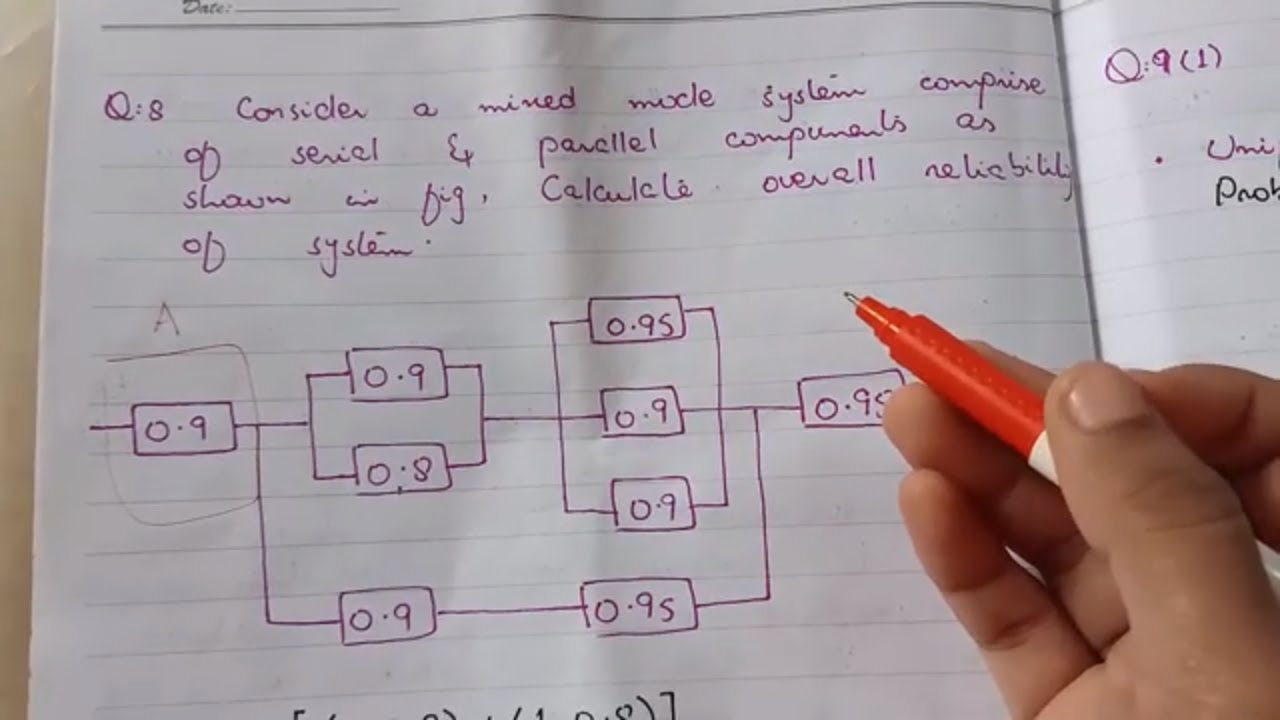 Date:
Q:8 Consider a mixed mode system comprise
of serial & parallel components as
shown in fig, Calculate overall reliability
of system.
Q:9 (1)
Uni
Prob
A
0.95
0.9
0.9 0.9 0.95
0.8
0.9
0.9 0.95